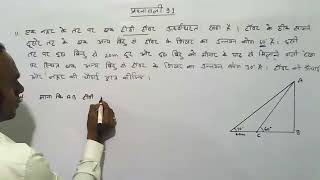 प्रश्नावली 9.1
11. एक नहर के तट पर एक टीवी टॉवर ऊर्ध्वाधरतः खड़ा है। टॉवर के ठीक सामने
दूसरे तट के एक अन्य बिंदु से टॉवर के शिखर का उन्नयन कोण 60° है। इसी
तट पर इस बिंदु से 20m दूर और इस बिंदु को मीनार के पाद से मिलाने वाली रेखा
पर स्थित एक अन्य बिंदु से टॉवर के शिखर का उन्नयन कोण 30° है। टॉवर की ऊँचाई
और नहर की चौड़ाई ज्ञात कीजिए।
माना कि AB टॉवर
A
30°
60°
D
20m
C
B